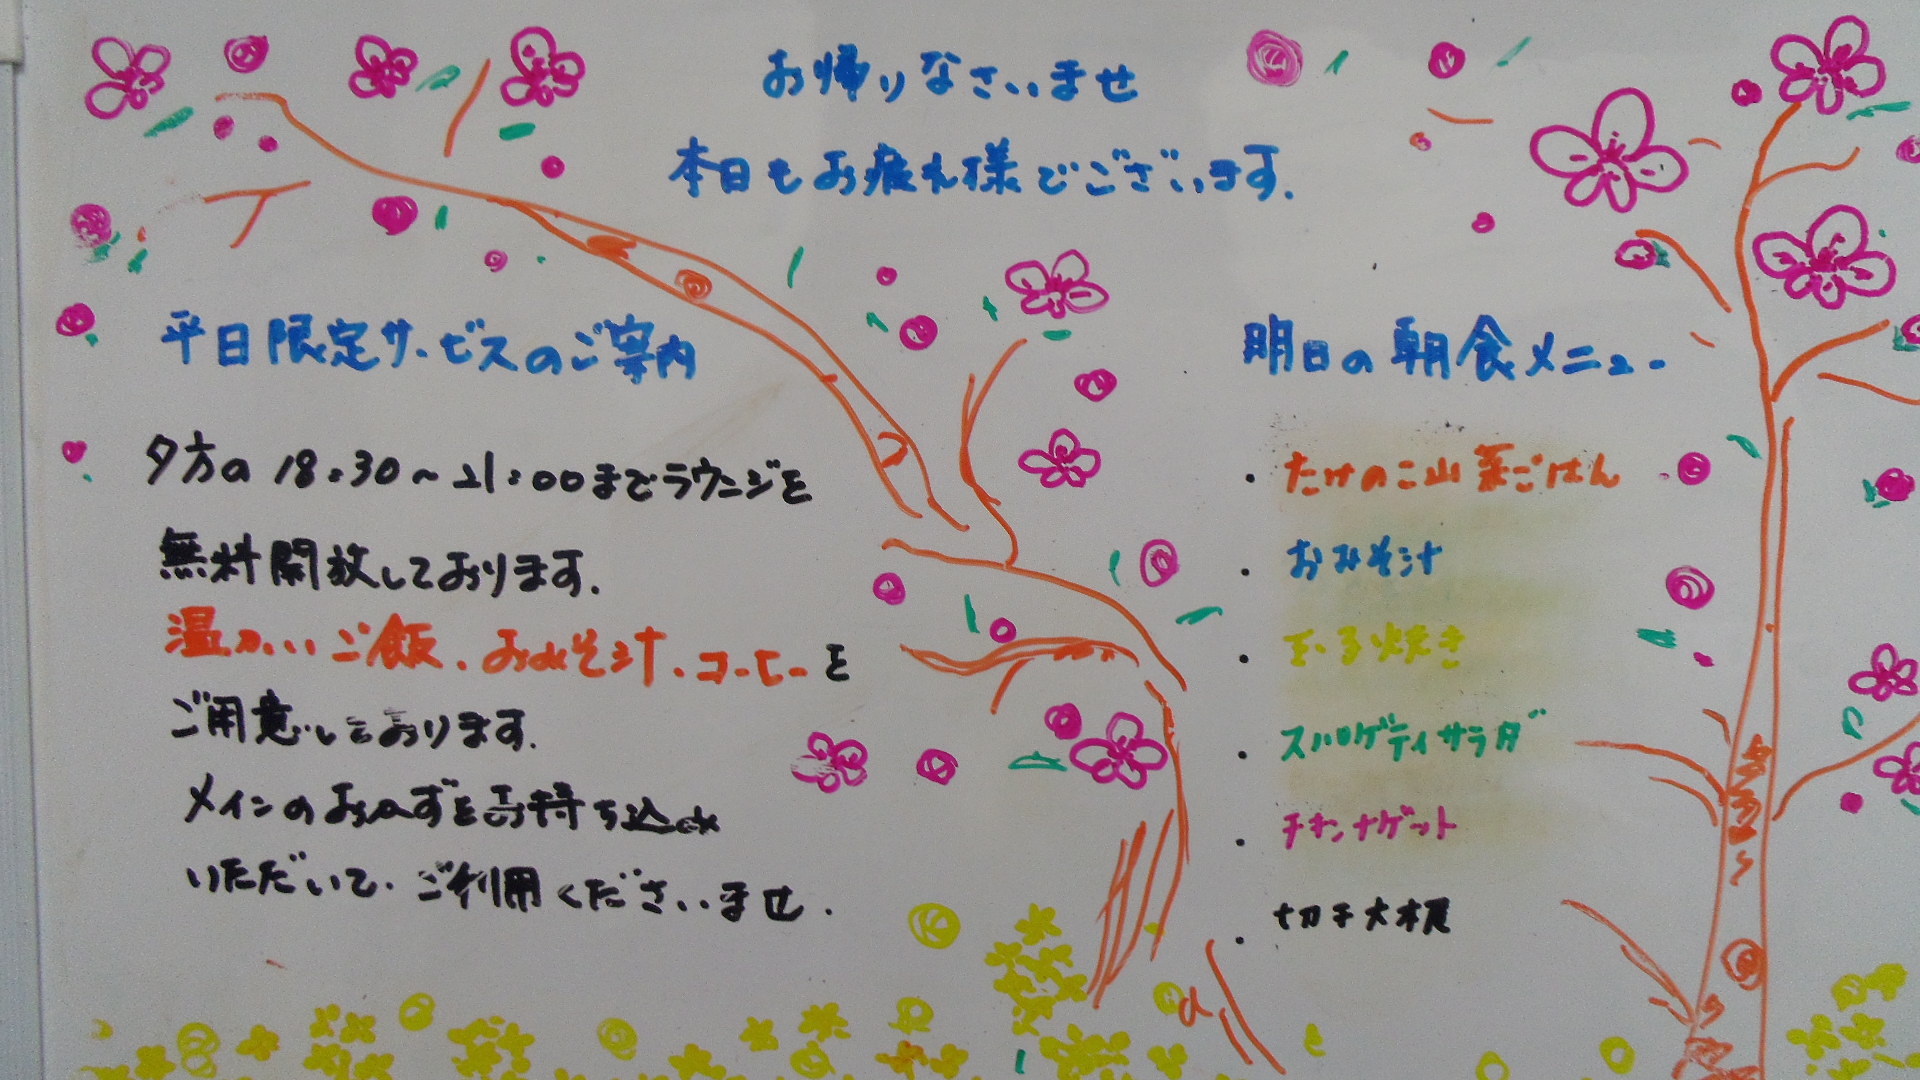 お帰りなさいませ
本日もお疲れ様でございます.
平日限定サービスのご案内
夕方の 18:30～21:00までラウンジを
無料開放しております.
温かいご飯.おみそ汁.コーヒーを
ご用意しております.
メインのおかずをお持ち込み
いただいて.ご利用くださいませ.
明日の朝食メニュー
・たけのこ山菜ごはん
・おみそ汁
・玉子焼き
・スパゲティサラダ
・チキンナゲット
・切干大根